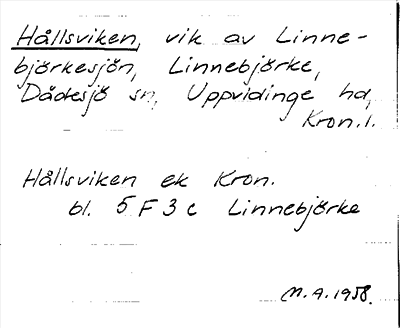 Hållsviken, vik av Linne-
björkesjön, Linnebjörke,
Dädesjö sn, Uppvidinge hd,
Kron.l.
Hållsviken ek Kron.
bl. 5 F 3 c Linnebjörke
M.A. 1958.